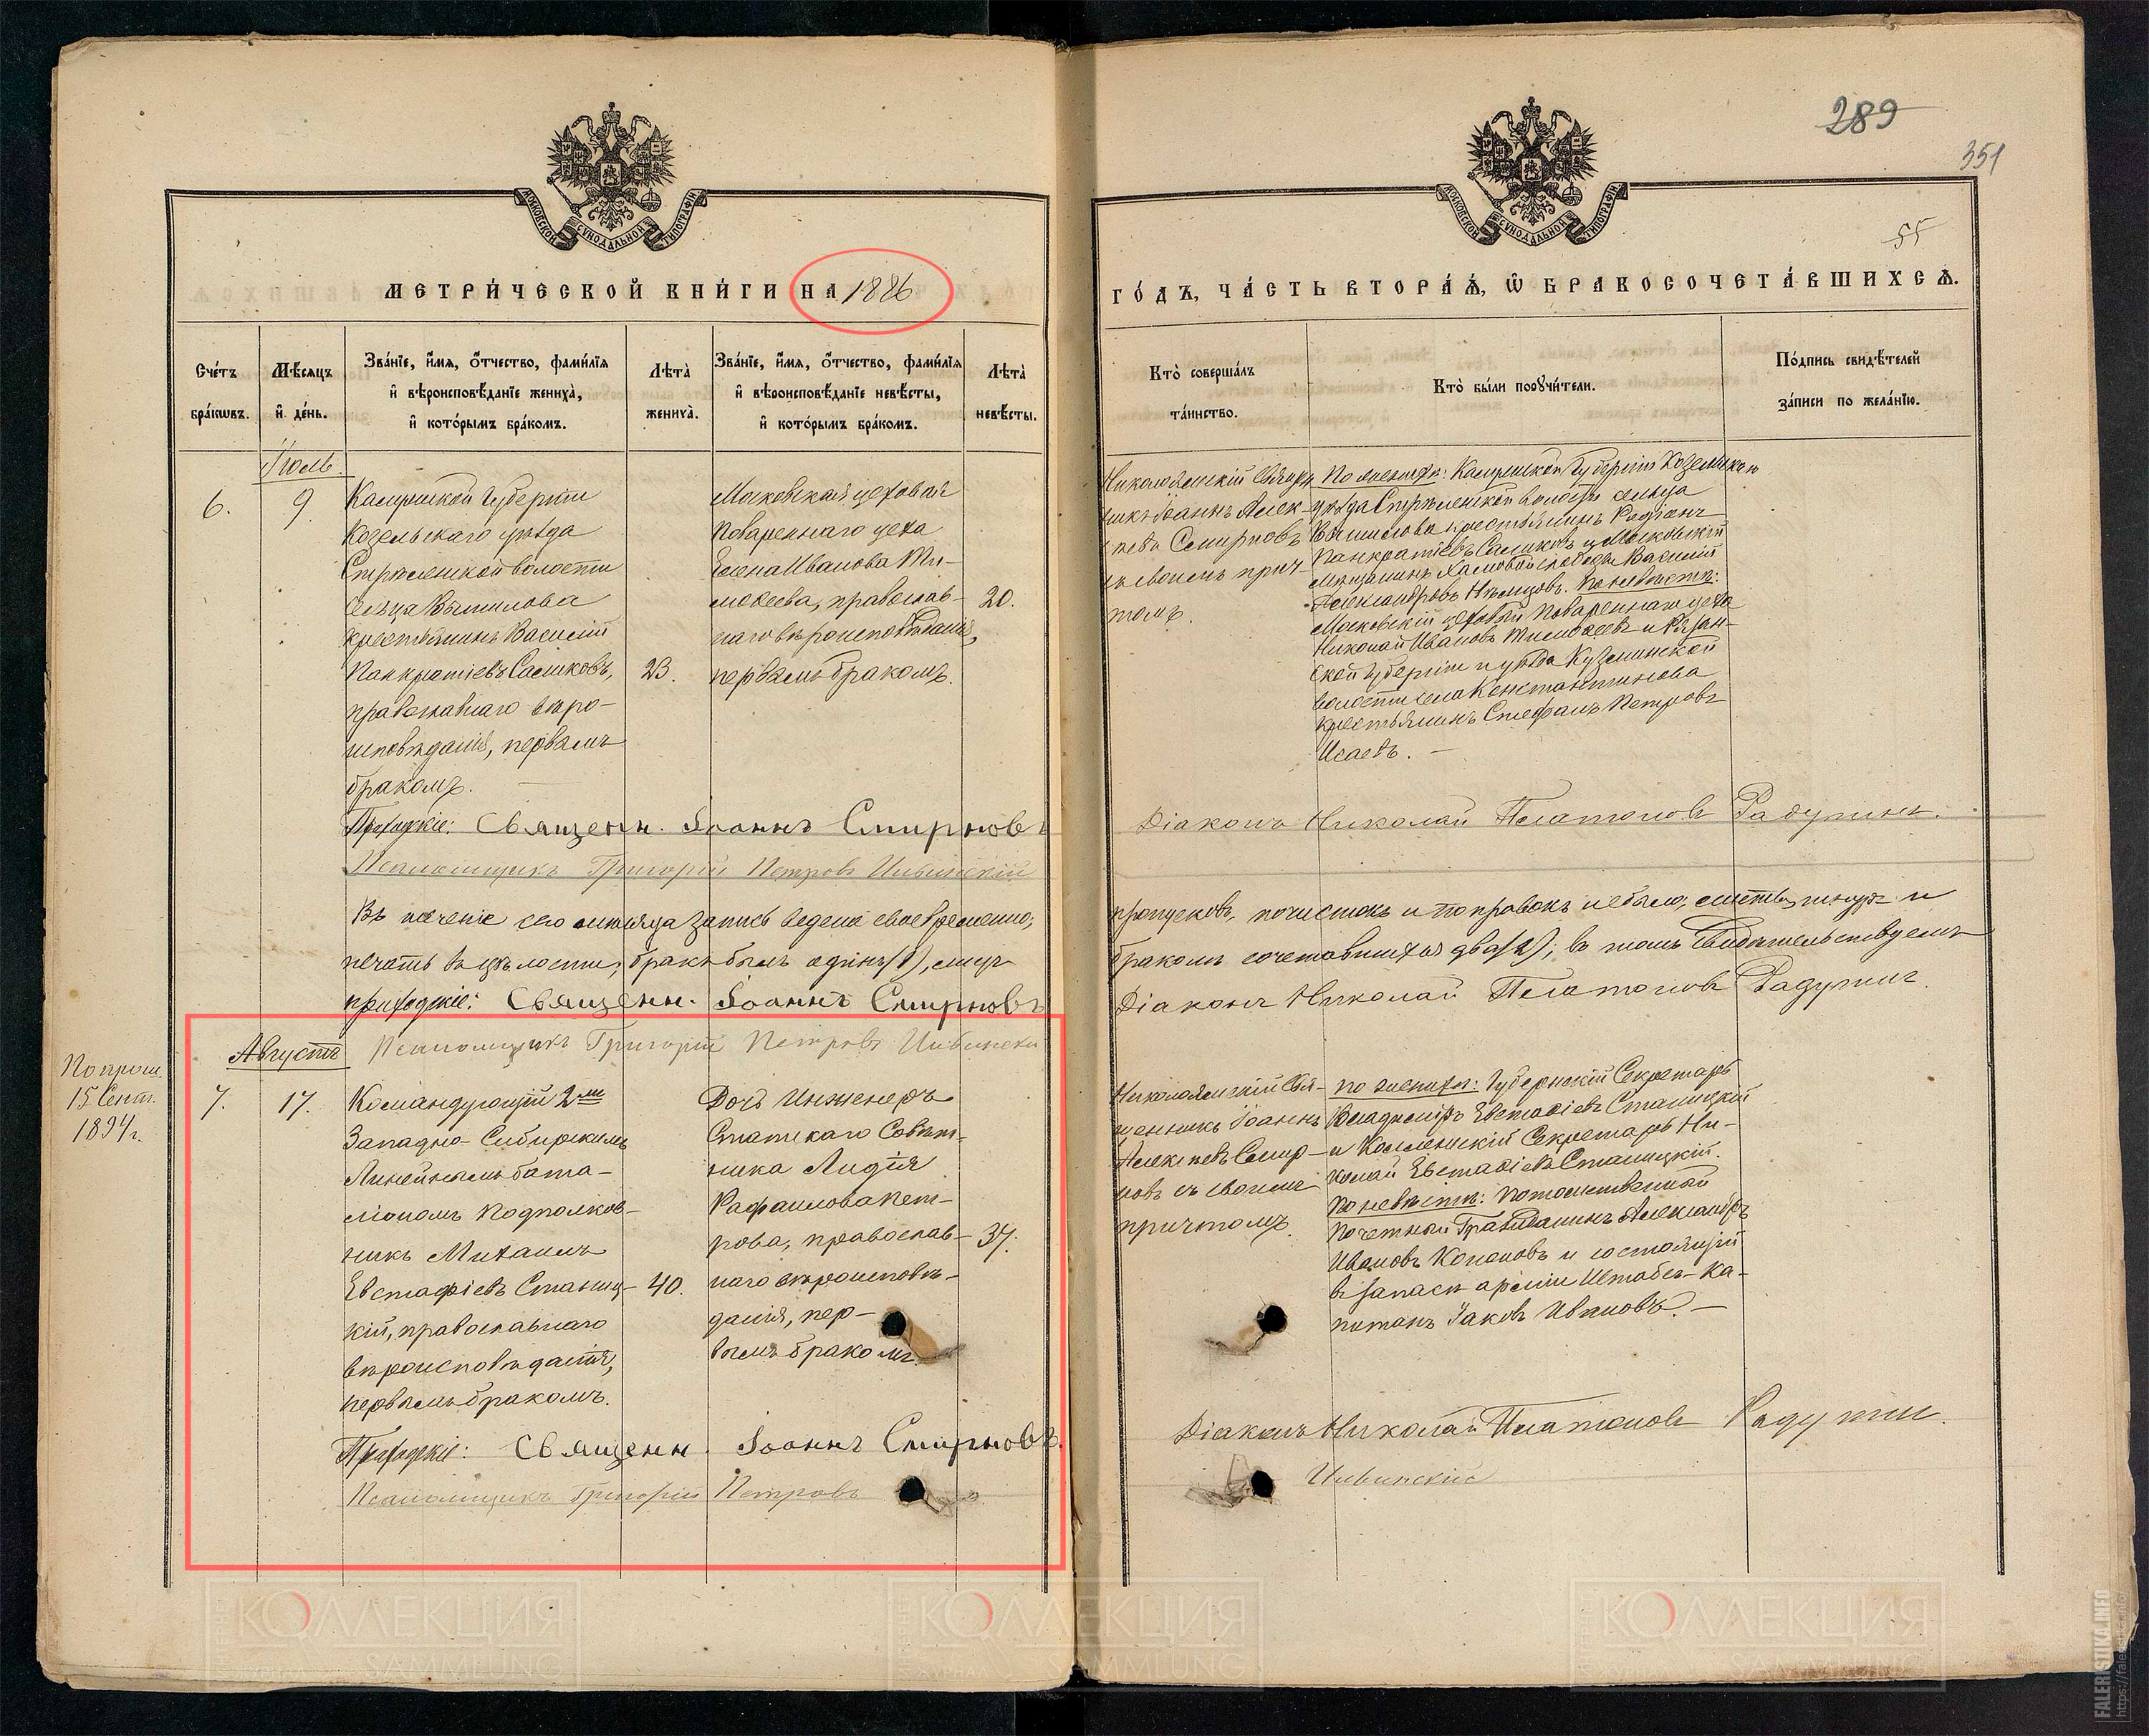 289
351
55
МОСКОВСКОЙ СѴНОДАЛЬНОЙ ТИПОГРАФІИ
МОСКОВСКОЙ СѴНОДАЛЬНОЙ ТИПОГРАФІИ
МЕТРИ́ЧЕСКОЙ КНИ́ГИ НА 1886
ГО́ДЪ, ЧА́СТЬ ВТОРА́Ѧ, Ѽ БРАКОСОЧЕТА́ВШИХСѦ.
Сче́тъ
бра́кѡвъ.
Мѣ́сяцъ
и҆ де́нь.
Зва́нїе, и҆́мя, ѻ҆́тчество, фами́лїя
и҆ вѣроисповѣ́данїе жениха̀,
и҆ кото́рымъ бра́комъ.
Лѣта̀
жениха̀.
Зва́нїе, и҆́мя, ѻ҆́тчество, фами́лїя
и҆ вѣроисповѣ́данїе невѣ́сты,
и҆ кото́рымъ бра́комъ.
Лѣта̀
невѣ́сты.
Кто̀ соверша́лъ
та́инство.
Кто̀ бы́ли порꙋчи́тели.
По́дпись свидѣ́телей
за́писи по жела́нїю.
Іюль.
6.
9.
Калужской губерніи
Козельскаго уѣзда
Стрѣлецкой волости
сельца Вышилова
крестьянинъ Василій
Панкратіевъ Саликовъ,
православнаго вѣро-
исповѣданія, первымъ
бракомъ.
23.
Московская цеховая
Повареннаго цеха
Елена Иванова Ти-
моѳеева, православ-
наго вѣроисповѣданія,
первымъ бракомъ.
20.
Николоямскій Священ
никъ Іоаннъ Алек-
сѣевъ Смирновъ
съ своимъ прич-
томъ.
По женихѣ: Калужской губерніи Козельскаго
уѣзда Стрѣлецкой волости сельца
Вышилова крестьянинъ Родіонъ
Панкратіевъ Саликовъ и Московскій
мѣщанинъ Хамовной слободы Василій
Александровъ Нѣмцовъ. По невѣстѣ:
Московскій цеховой Повареннаго цеха
Николай Ивановъ Тимоѳеевъ и Рязан-
ской губерніи и уѣзда Кузминской
волости села Константинова
крестьянинъ Стефанъ Петровъ
Исаевъ. —
Приходскіе: Священн. Іоаннъ Смирновъ
Діаконъ Николай Платоновъ Радугинъ.
Псаломщикъ Григорій Петровъ
Въ теченіе сего мѣсяца запись ведена своевременно,
пропусковъ, почистокъ и поправокъ не было, листы, шнуръ и
печать въ цѣлости, бракъ былъ одинъ (1), лицъ
бракомъ сочетавшихся два (2); въ томъ свидѣтельствуемъ
приходскіе: Священн. Іоаннъ Смирновъ
Діаконъ Николай Платоновъ Радугинъ.
Псаломщикъ Григорій Петровъ
Августъ
По прош.
15 Сент.
1894 г.
7.
17.
Командующій 2мъ
Западно-Сибирскимъ
Линейнымъ бата-
ліономъ Подполков-
никъ Михаилъ
Евстафіевъ Станиц-
кій, православнаго
вѣроисповѣданія,
первымъ бракомъ.
40.
Дочь Инженеръ
Статскаго Совѣт-
ника Лидія
Рафаилова Пет-
рова, православ-
наго вѣроисповѣ-
данія, пер-
вымъ бракомъ.
34.
Николоямскій Свя-
щенникъ Іоаннъ
Алексѣевъ Смир-
новъ съ своимъ
причтомъ.
По женихѣ: Губернскій Секретарь
Владиміръ Евстафіевъ Станицкій
и Коллежскій Секретарь Ни-
колай Евстафіевъ Станицкій.
По невѣстѣ: Потомственный
Почетный Гражданинъ Александръ
Ивановъ Кононовъ и состоящій
въ запасѣ арміи Штабсъ-Ка-
питанъ Іаковъ Ивановъ. —
Приходскіе: Священн. Іоаннъ Смирновъ.
Діаконъ Николай Платоновъ Радугинъ.
Псаломщикъ Григорій Петровъ
КОЛЛЕКЦИЯ
ЖУРНАЛ SAMMLUNG
КОЛЛЕКЦИЯ
ЖУРНАЛ SAMMLUNG
КОЛЛЕКЦИЯ
ЖУРНАЛ SAMMLUNG
FALERISTIKA.INFO